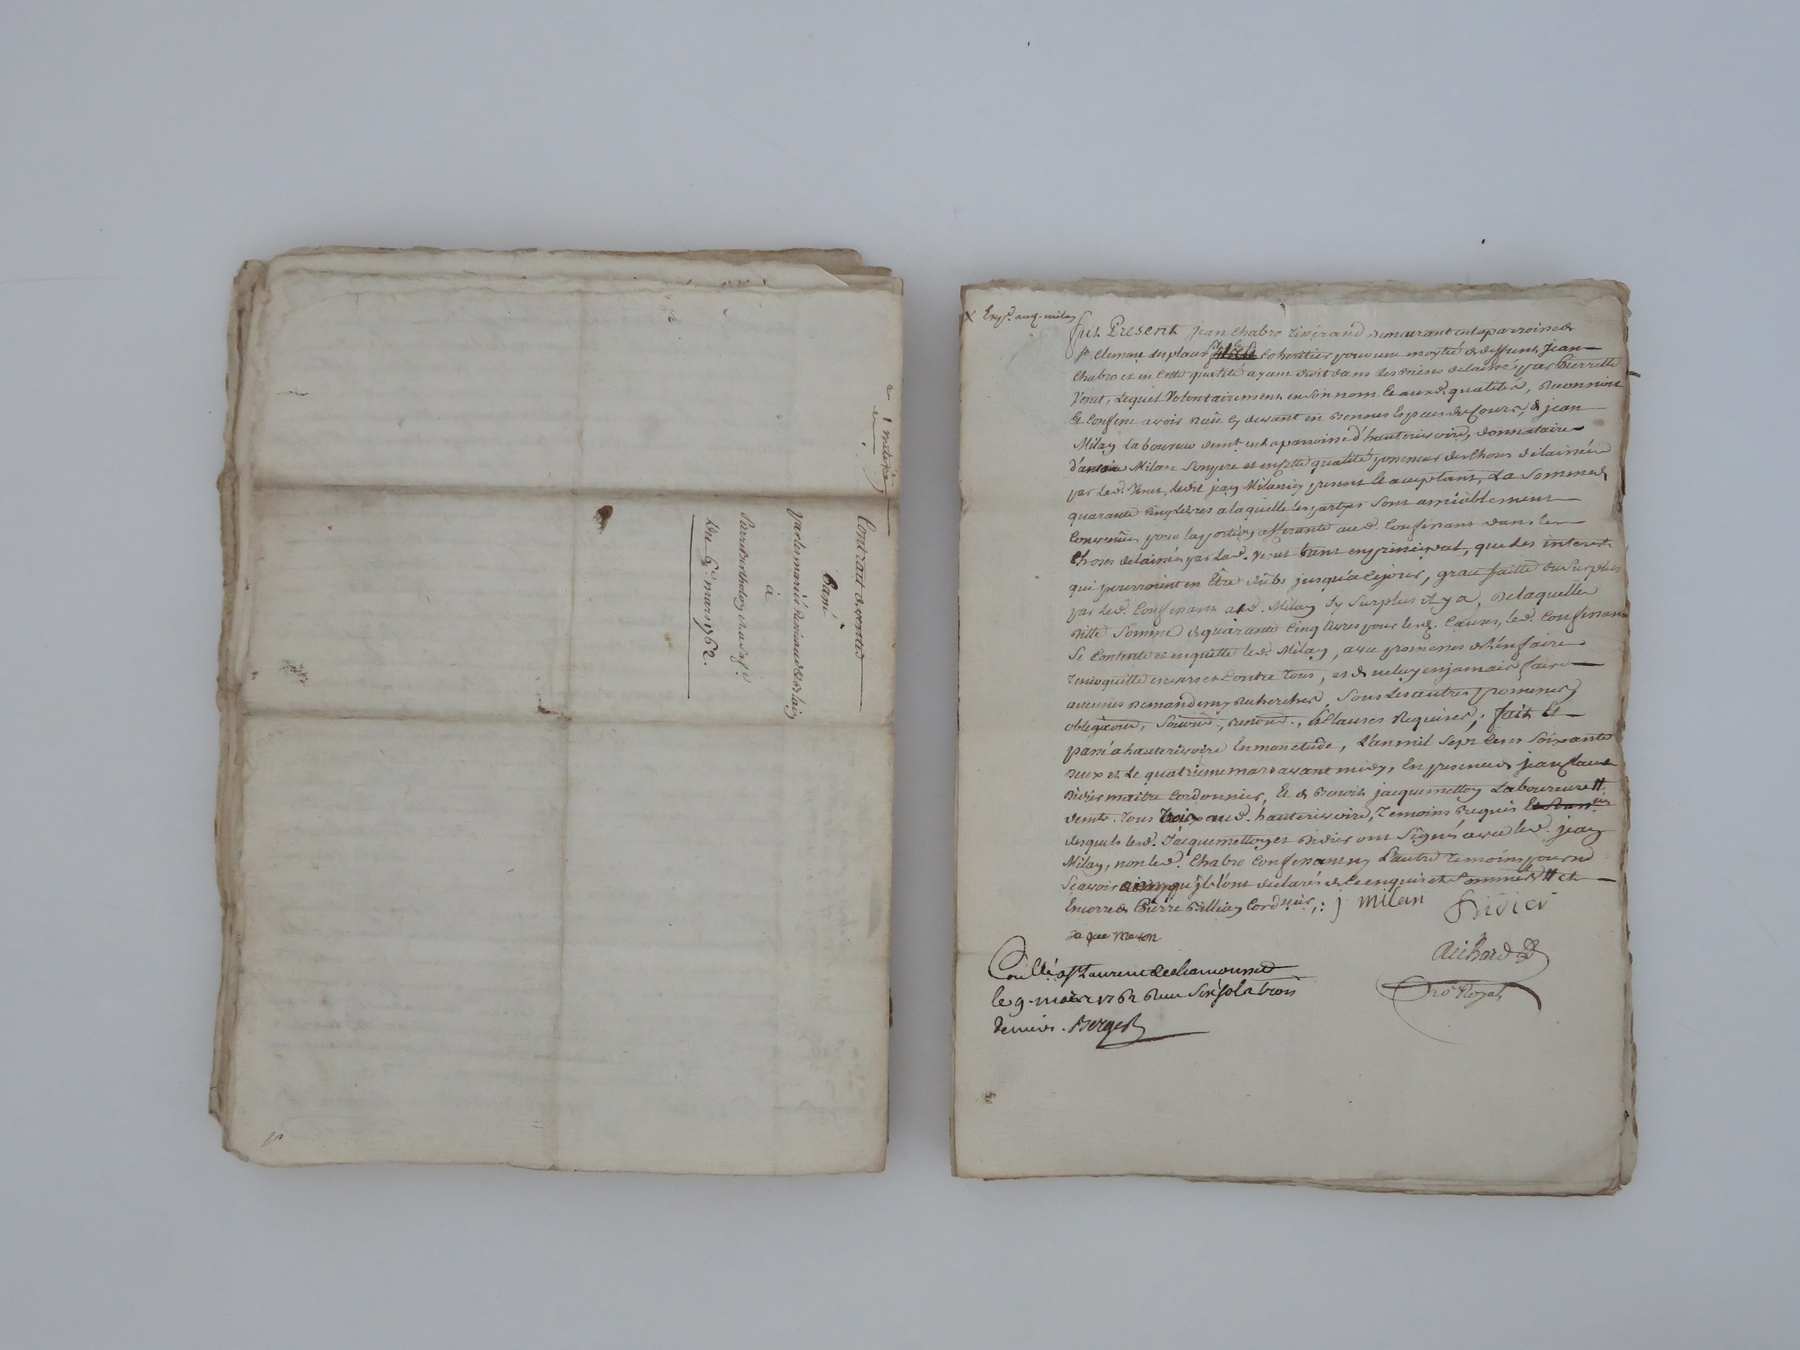 Contrat de vente
Passé
par les mariés
à
Du 9e. mars 1762.
Expé. aud. milan
fut Present jean chabre demeurant en la parroisse de
St. Clement cohéritier pour une moytié de deffunt jean
chabre et en cette qualité ayant droit dans les délaissés par Pierrette
Venet, lequel Volontairement en son nom et aux d. qualités, Reconnoit
et Confesse avoir Reçû cy devant en Bonnes Especes de Cours, de jean
Milan Laboureur demt. en la parroisse d'hauterivoire, donnataire
d'antoine Milan son pere et en cette qualité possesseur des choses délaissées
par la d. Venet, ledit jean Milan icy present et acceptant, La Somme de
quarante Cinq livres a laquelle les parties Sont amiablement
Convenües pour la portion afferante au d. Confessant dans les
Choses délaissées par lad. Venet tant en principal, que des interest
qui pourroient en Être dûbs jusqu'a ce jour, grace faitte du Surplus
par le d. Confessant au d. Milan Sy Surplus il y a, De laquelle
ditte Somme de quarante Cinq livres pour les d. Causes, le d. Confessant
Se Contente et en quitte le d. Milan, avec promesses de l'en faire
tenir quitte envers et Contre tous, et de ne luy en jamais faire
aucunes Demandes ny Recherches, Sous les autres promesses,
obligations, Soumis., Renon., & Clauses Requises; fait et
passé a hauterivoire En mon etude, L'an mil Sept Cent Soixante
deux et Le quatrieme mars avant midy, En presence de jean Claude
Didier maître Cordonnier, Et de Benoit jacquemetton Laboureur #
demts. tous aud. hauterivoire, Temoins Requis
desquels le d. Jacquemetton et Didier ont Signé avec le d. jean
Milan, non le d. Chabre Confessant ny L'autre temoins pour ne
Scavoir qu'ils l'ont declarés de ce enquis et Sommés # et
Encorre de Pierre Cordnier,: j milan Didier
jaque Meton
Richard
No.re Royal
Con.llé a St Laurent de chamousset
le 9. mars 1762 Reçu Six sols trois
deniers. Berger